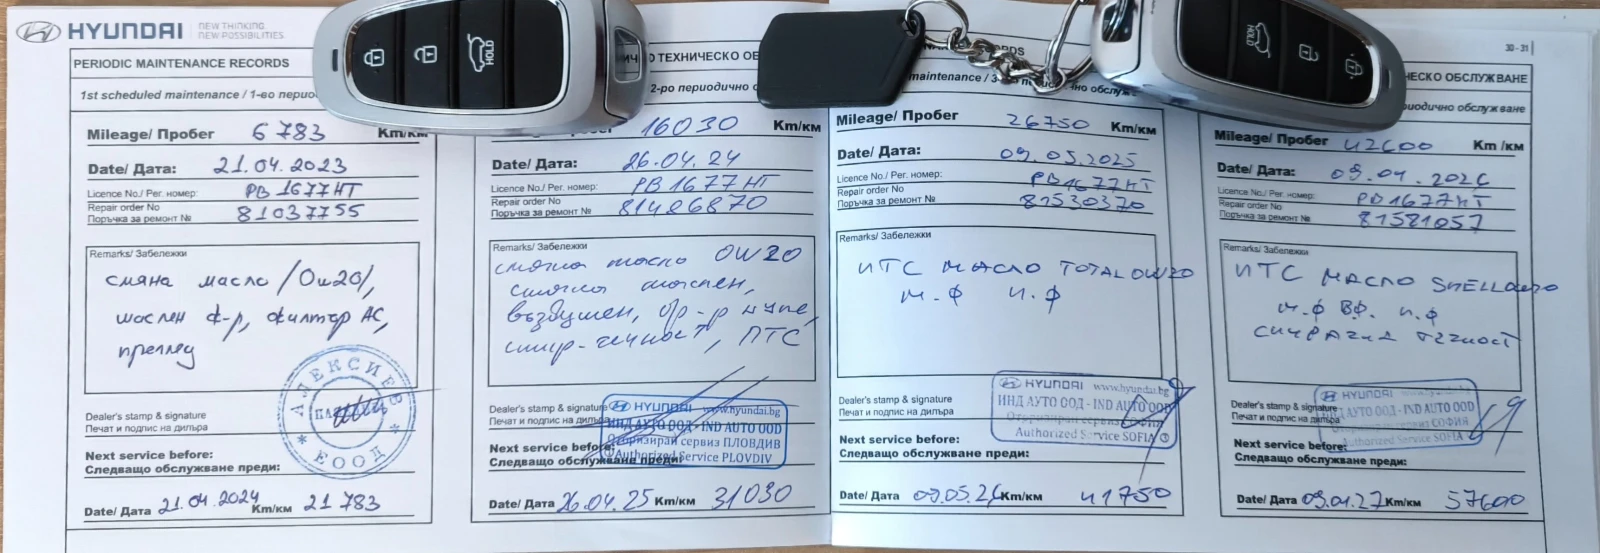 HYUNDAI NEW THINKING. NEW POSSIBILITIES.
30 - 31
PERIODIC MAINTENANCE RECORDS
ТЕХНИЧЕСКО
ОБСЛУЖВАНЕ
1st scheduled maintenance / 1-во
2-ро периодично
maintenance /
обслужване
Mileage/ Пробег 6 783 Km/км
Date/ Дата: 21.04.2023
Licence No./ Рег. номер: PB 1677 HT
Repair order No
Поръчка за ремонт № 81037755
Remarks/ Забележки
смяна масло /0w20/,
маслен ф-р, филтър АС,
преглед
АЛЕКСИЕВ
ЕООД
Dealer's stamp & signature
Печат и подпис на дилъра
Next service before:
Следващо обслужване преди:
Date/ Дата 21.04.2024 Km/км 21 783
16030 Km/км
Date/ Дата: 26.04.24
Licence No./ Рег. номер: PB 1677 HT
Repair order No
Поръчка за ремонт № 81486870
Remarks/ Забележки
смяна масло 0W20
смяна маслен,
въздушен,
ПТС
Dealer's stamp & signature
Печат и подпис на дилъра
HYUNDAI www.hyundai.bg
ИНД АУТО ООД - IND AUTO OOD
Оторизирай сервиз ПЛОВДИВ
Authorized Service PLOVDIV
Next service before:
Следващо обслужване преди:
Date/ Дата 26.04.25 Km/км 31030
Mileage/ Пробег 26750 Km/км
Date/ Дата: 09.05.2025
Licence No./ Рег. номер: PB 1677 HT
Repair order No
Поръчка за ремонт № 81530370
Remarks/ Забележки
ИТС МАСЛО TOTAL 0W20
М.Ф П.Ф
Dealer's stamp & signature
Печат и подпис на дилъра
HYUNDAI www.hyundai.bg
ИНД АУТО ООД - IND AUTO OOD
Authorized Service SOFIA
Next service before:
Следващо обслужване преди:
Date/ Дата 09.05.26 Km/км 41750
Mileage/ Пробег 42600 Km /км
Date/ Дата: 09.04.2026
Licence No./ Рег. номер: PB 1677 HT
Repair order No
Поръчка за ремонт № 81581057
Remarks/ Забележки
ИТС МАСЛО SHELL 0W20
М.Ф ВФ. П.Ф
СПИРАЧНА ТЕЧНОСТ
Dealer's stamp & signature
Печат и подпис на дилъра
HYUNDAI
ИНД АУТО ООД - IND AUTO OOD
Authorized Service SOFIA
Next service before:
Следващо обслужване преди:
Date/ Дата 09.04.27 Km/км 57600
HOLD
HOLD